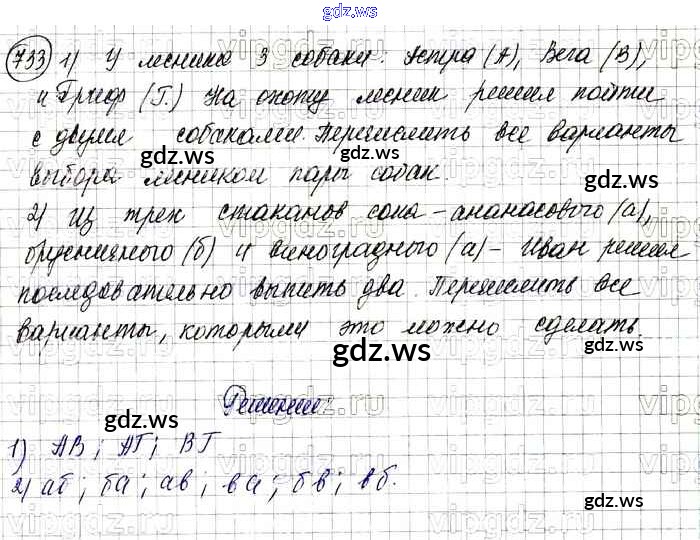 gdz.ws
733 1) У лесника 3 собаки: Астра (А), Вега (В),
и Гриф (Г.) На охоту лесник решил пойти
с двумя собаками. Перечислить все варианты
gdz.ws
выбора лесником пары собак.
gdz.ws
2) Из трех стаканов сока - ананасового (а),
брусничного (б) и виноградного (а) - Иван решил
последовательно выпить два. Перечислить все
варианты, которыми это можно сделать.
gdz.ws
Решение:
gdz.ws
1) АВ; АГ; ВГ
2) аб; ба; ав; ва; бв; вб.
gdz.ws
gdz.ws
vipgdz.ru